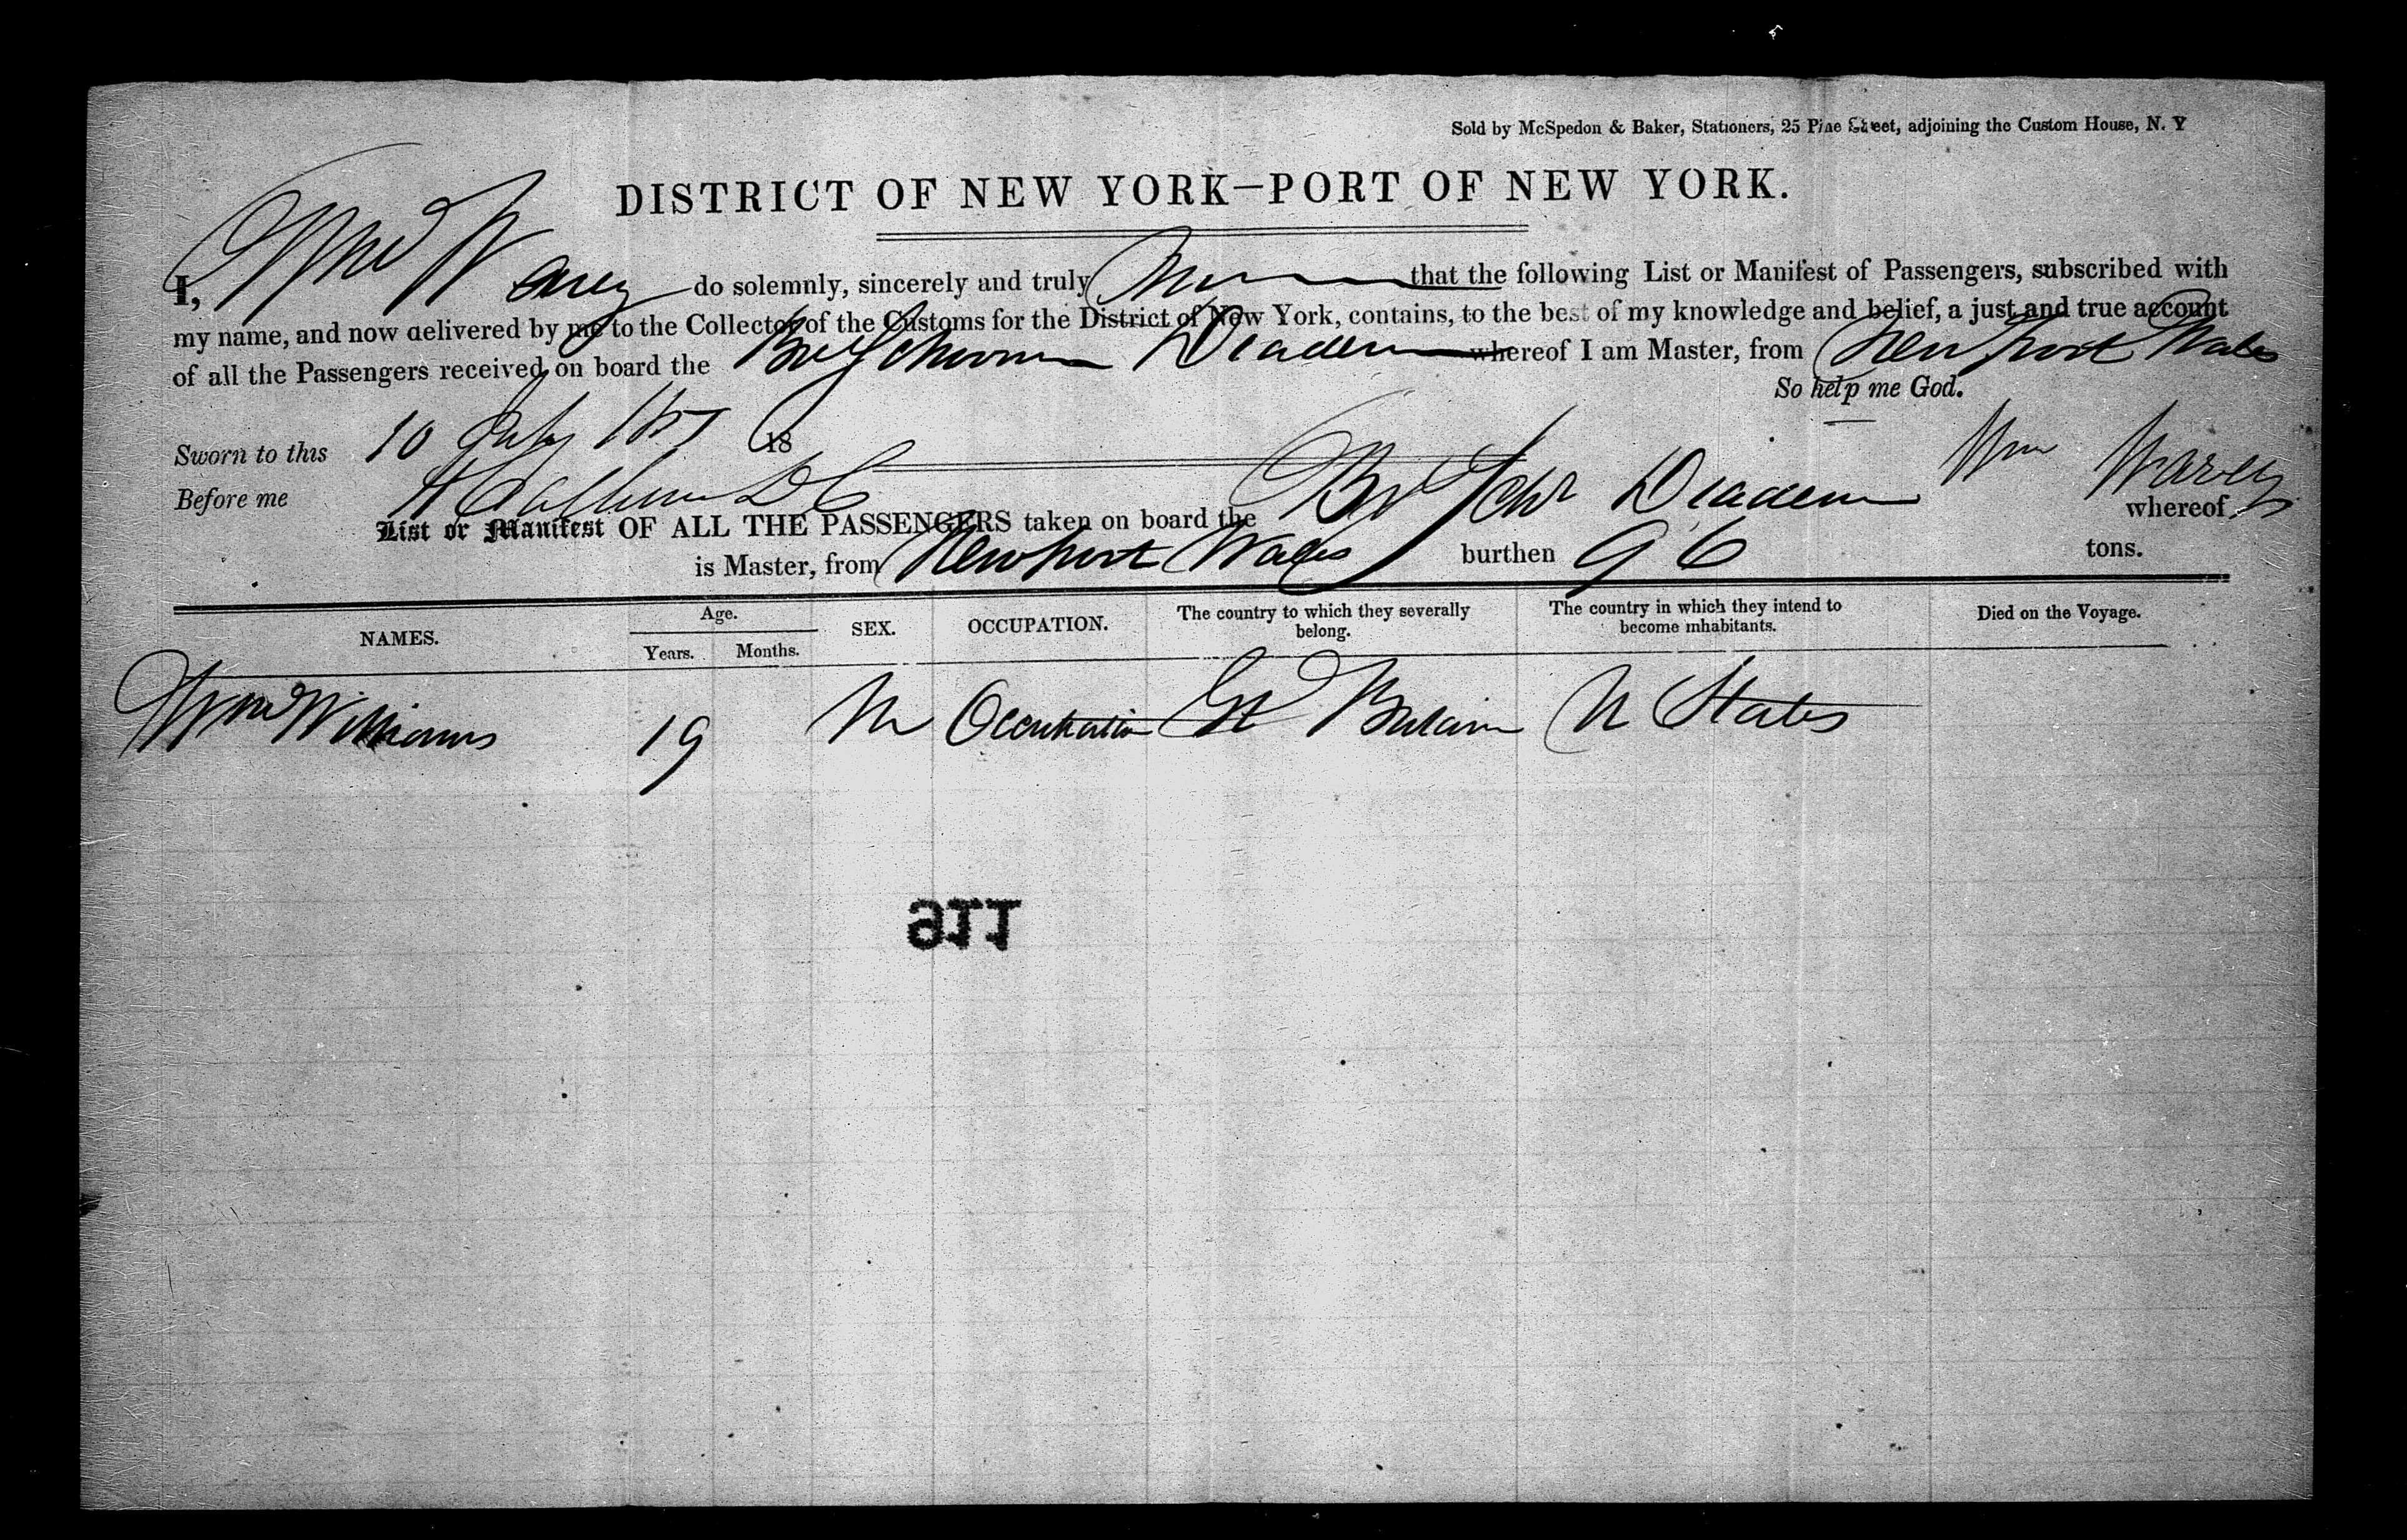 Sold by McSpedon & Baker, Stationers, 25 Pine Street, adjoining the Custom House, N. Y
DISTRICT OF NEW YORK—PORT OF NEW YORK.
I, Wm do solemnly, sincerely and truly that the following List or Manifest of Passengers, subscribed with
my name, and now delivered by me to the Collector of the Customs for the District of New York, contains, to the best of my knowledge and belief, a just and true account
of all the Passengers received on board the Br Schooner Diadem whereof I am Master, from Newport Wales
So help me God.
Sworn to this 10 July 185 18
Before me Wm
List or Manifest OF ALL THE PASSENGERS taken on board the Br Schr Diadem whereof
is Master, from Newport Wales burthen 96 tons.
NAMES. Age. Years. Months. SEX. OCCUPATION. The country to which they severally belong. The country in which they intend to become inhabitants. Died on the Voyage.
Wm Williams 19 M Occupation Gt Britain U States
911